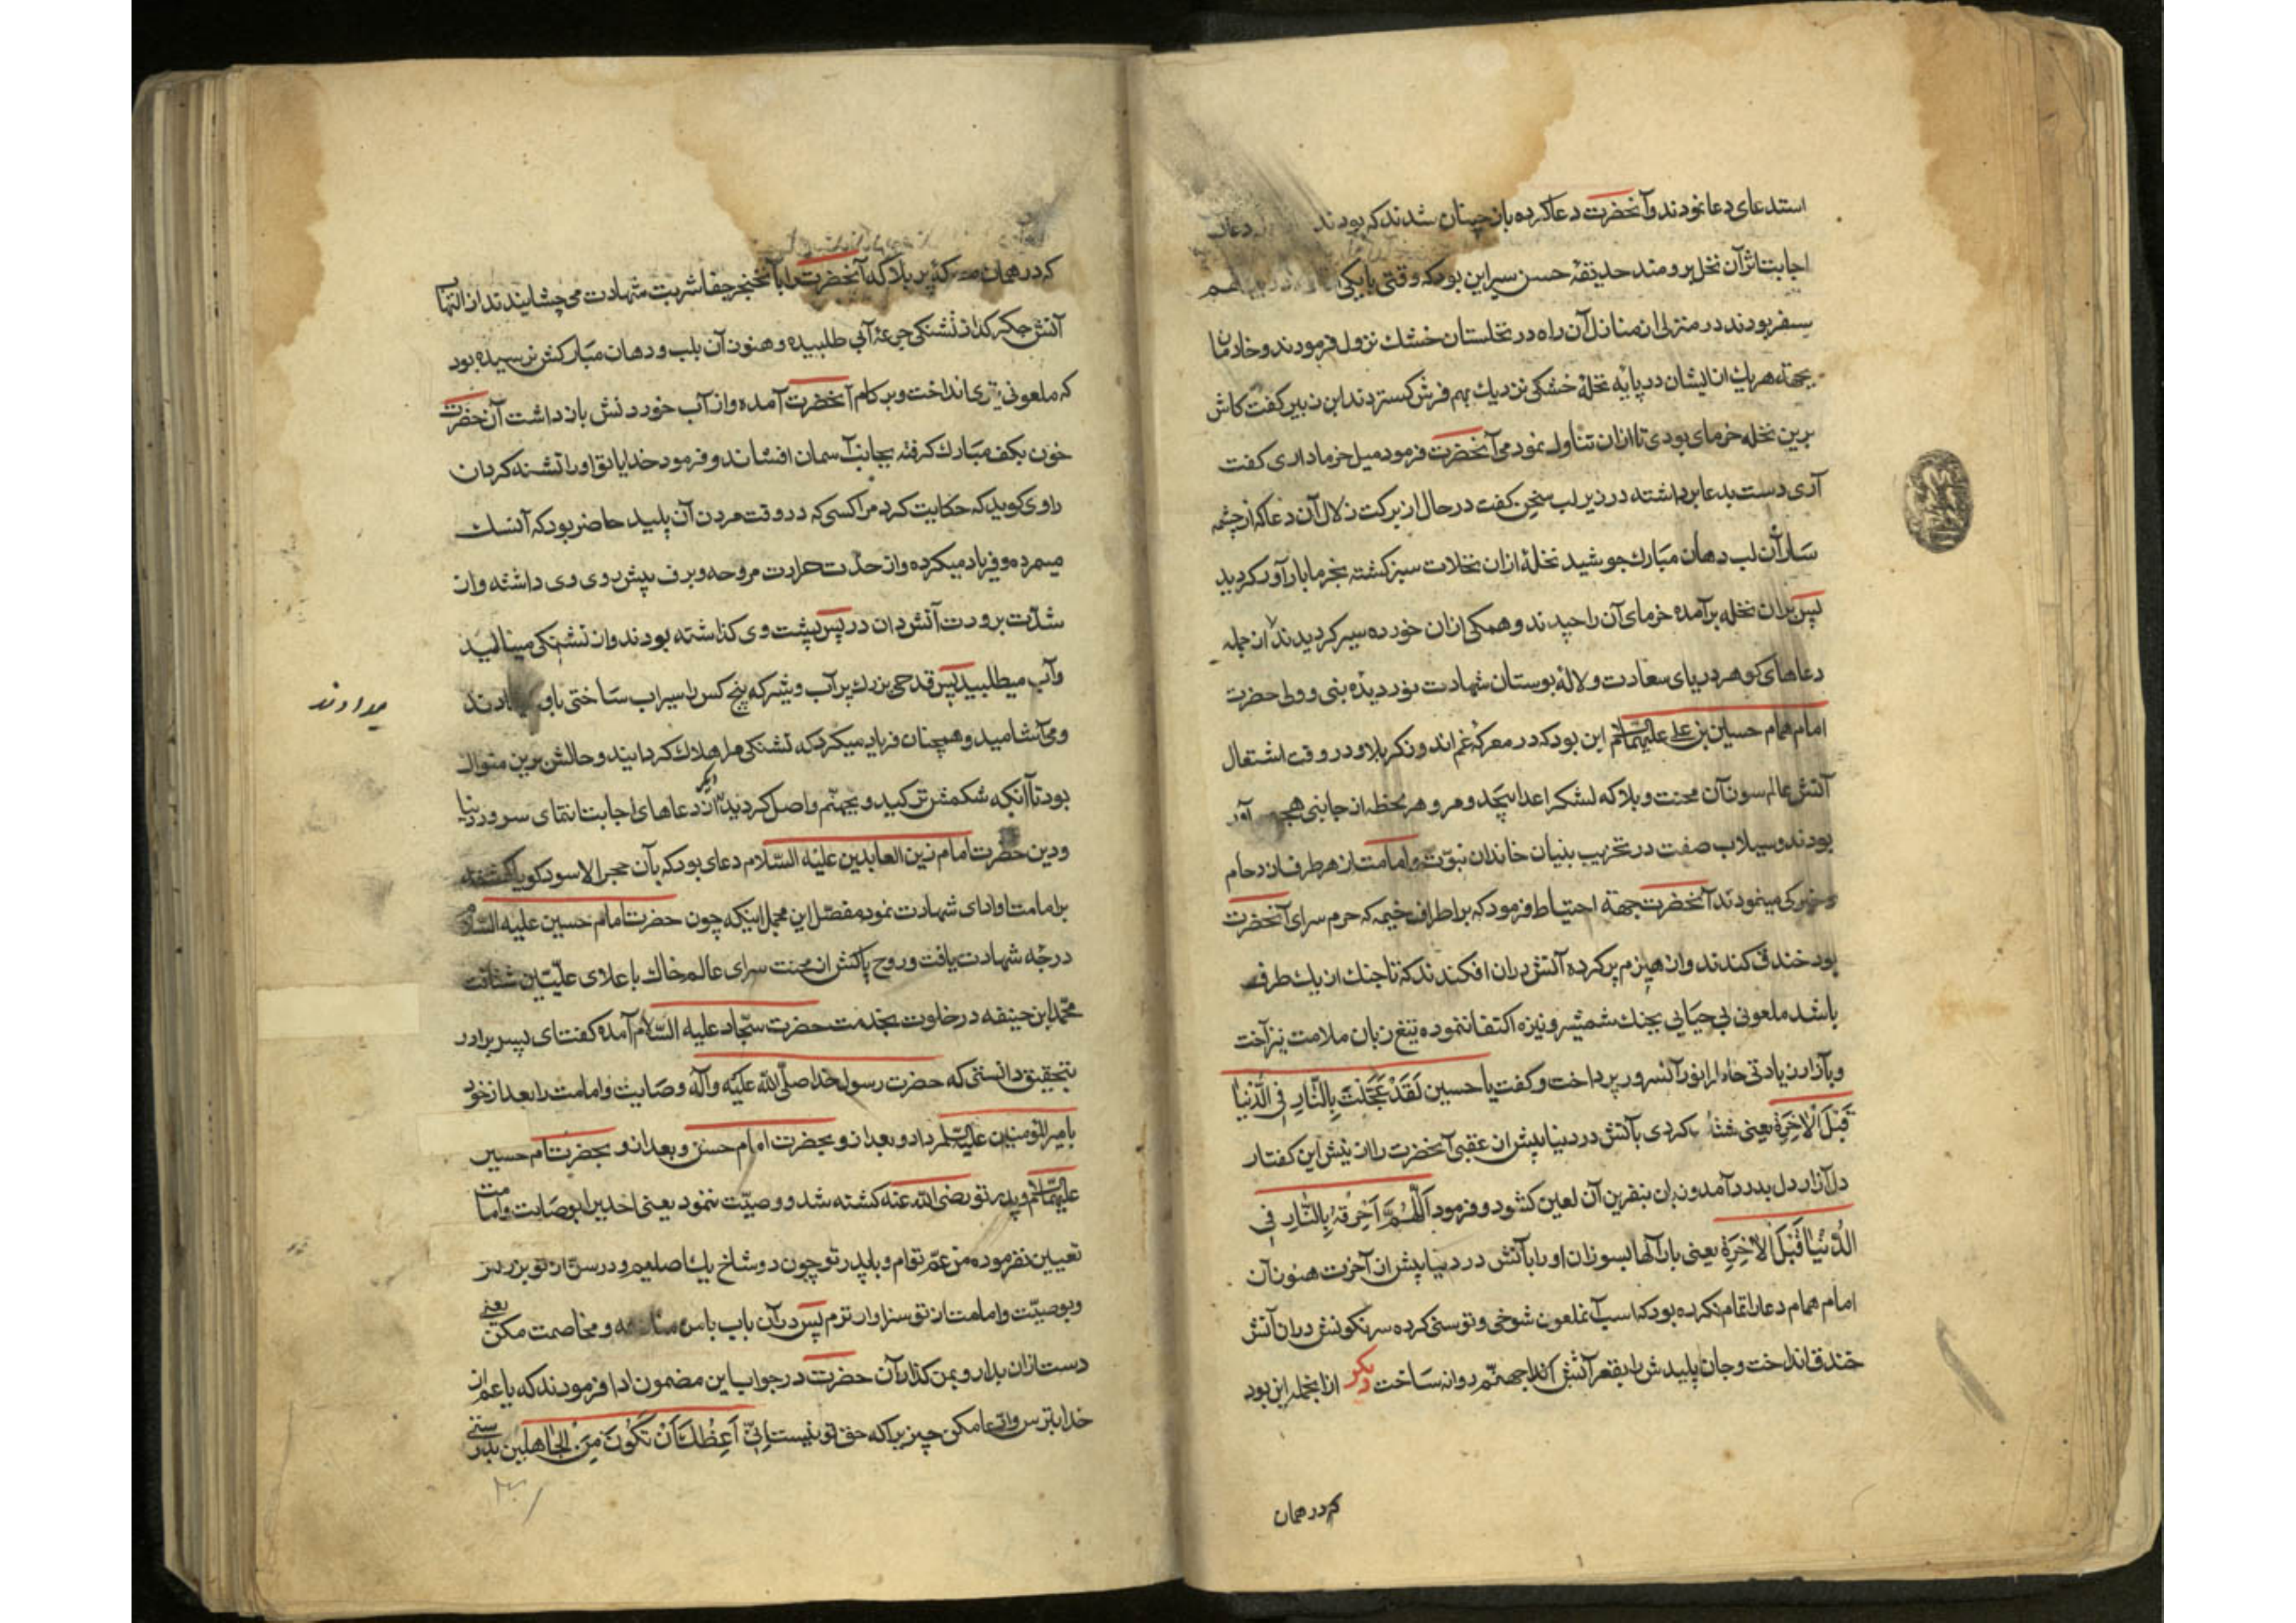 استدعای دعا نمودند و آنحضرت دعا کرده باز چنان شدند که بودند دعای
اجابت اثر آن نخل برومند حدیقه حسن سیر این بود که وقتی با یکی هم
سفر بودند در منزلی از منازل آن راه در نخلستان خشک نزول فرمودند و خادمان
بجهة هر یک از ایشان در پایه نخلهٔ خشکی نزدیک بهم فرش کستردند ابن زبیر کفت کاش
برین نخله خرمای بودی تا ازان تناول نمودمی آنحضرت فرمود میل خرما داری کفت
آری دست بدعا برداشته در زیر لب سخن کفت در حال از برکت زلال آن دعا که از چشمه
سار آن لب دهان مبارک جوشید نخلهٔ ازان نخلات سبز کشته بخرما بارآور کردید
پس بران نخله برآمده خرمای آن را چیدند و همکی ازان خورده سیر کردیدند از جمله
دعاهای کوهر دریای سعادت و لالهٔ بوستان شهادت نور دیدهٔ نبی و ولی حضرت
امام همام حسین بن علی علیهما السلام این بود که در معرکه غم اندوز کربلا و در وقت اشتعال
آتش عالم سوز آن محنت و بلا که لشکر اعدا بیحد و مر و هر لحظه از جانبی هجوم آور
بودند و سیلاب صفت در تخریب بنیان خاندان نبوّت و امامت از هر طرف ازدحام
مینمودند آنحضرت جهة احتیاط فرمود که بر اطراف خیمه که حرم سرای آنحضرت
بود خندق کندند و از هیزم پر کرده آتش دران افکندند که تا جنک از یک طرف
باشد ملعونی بی حیایی بجنک شمشیر و نیزه اکتفا ننموده تیغ زبان ملامت نیز آخت
و بآزار زیادتی خاطر انور آنسرور پرداخت و کفت یا حسین لَقَدْ عَجَّلْتَ بِالنّارِ فِی الدُّنْیا
قَبْلَ الاٰخِرَةِ یعنی شتاب کردی بآتش در دنیا پیش از عقبی آنحضرت را از نیش این کفتار
دل آزار دل بدرد آمد و زبان بنفرین آن لعین کشود و فرمود اَللّهُمَّ اَحْرِقْهُ بِالنّارِ فِی
الدُّنْیا قَبْلَ الاٰخِرَةِ یعنی بار آلها بسوزان او را بآتش در دنیا پیش از آخرت هنوز آن
امام همام دعا را تمام نکرده بود که اسب آنملعون شوخی و توسنی کرده سرنکونش دران آتش
خندق انداخت و جان پلیدش را بقعر آتش کدهٔ جهنّم روانه ساخت دیکر ازانجمله این بود
که در همان
که در همان پر بلا که آنحضرت را بآنخنجر جفا شربت شهادت می چشایندند از التهاب
آتش جکر کداز تشنکی جرعهٔ آبی طلبیده و هنوز آن بلب و دهان مبارکش نرسیده بود
که ملعونی تیری انداخت و بر کام آنحضرت آمده و از آب خوردنش بازداشت آن حضرت
خون بکف مبارک کرفته بجانب آسمان افشاند و فرمود خدایا تو او را تشنه کردان
راوی کوید که حکایت کرد مرا کسی که در وقت مردن آن پلید حاضر بود که آنسک
میمرده و فریاد میکرده و از حدّت حرارت مروحه و برف پیش روی وی داشته و از
شدّت برودت آتش دان در پس پشت وی کذاشته بودند و از تشنکی مینالید
و آب میطلبید پس قدحی بزرک پر آب و شیر که پنج کس را سیراب ساختی باو میدادند
میدادند
و می آشامید و همچنان فریاد میکرد که تشنکی مرا هلاک کردانید و حالش برین منوال
بود تا آنکه شکمش ترکید و بجهنّم واصل کردید دیکر از دعاهای اجابت انتمای سرور دنیا
و دین حضرت امام زین العابدین علیه السّلام دعای بود که بآن حجر الاسود کویا کشته
بر امامت او ادای شهادت نمود مفصّل این مجمل اینکه چون حضرت امام حسین علیه السلام
درجه شهادت یافت و روح پاکش از محنت سرای عالم خاک باعلای علّیّین شتافت
محمّد ابن حنیفه در خلوت بخدمت حضرت سجّاد علیه السّلام آمده کفت ای پسر برادر
بتحقیق دانستی که حضرت رسول خدا صلّی اللّه علیه وآله وصایت و امامت را بعد از خود
بامیر المؤمنین علیه السلم داد و بعد ازو بحضرت امام حسن و بعد ازو بحضرت امام حسین
علیهما السلام و پدر تو رضی اللّه عنه کشته شد و وصیّت ننمود یعنی احدیرا بوصایت و امامت
تعیین نفرموده من عمّ توام و با پدر تو چون دو شاخ یک اصلیم و در سنّ از تو بزرکتر
و بوصیّت و امامت از تو سزاوارترم پس درآن باب با من منازعه و مخاصمت مکن یعنی
دست ازان بدار و بمن کذار آن حضرت در جواب این مضمون ادا فرمودند که یا عم از
خدا بترس و ادّعا مکن چیزیرا که حق تو نیست اِنّی اَعِظُکَ اَنْ تَکُونَ مِنَ الْجاهِلین بدرستی